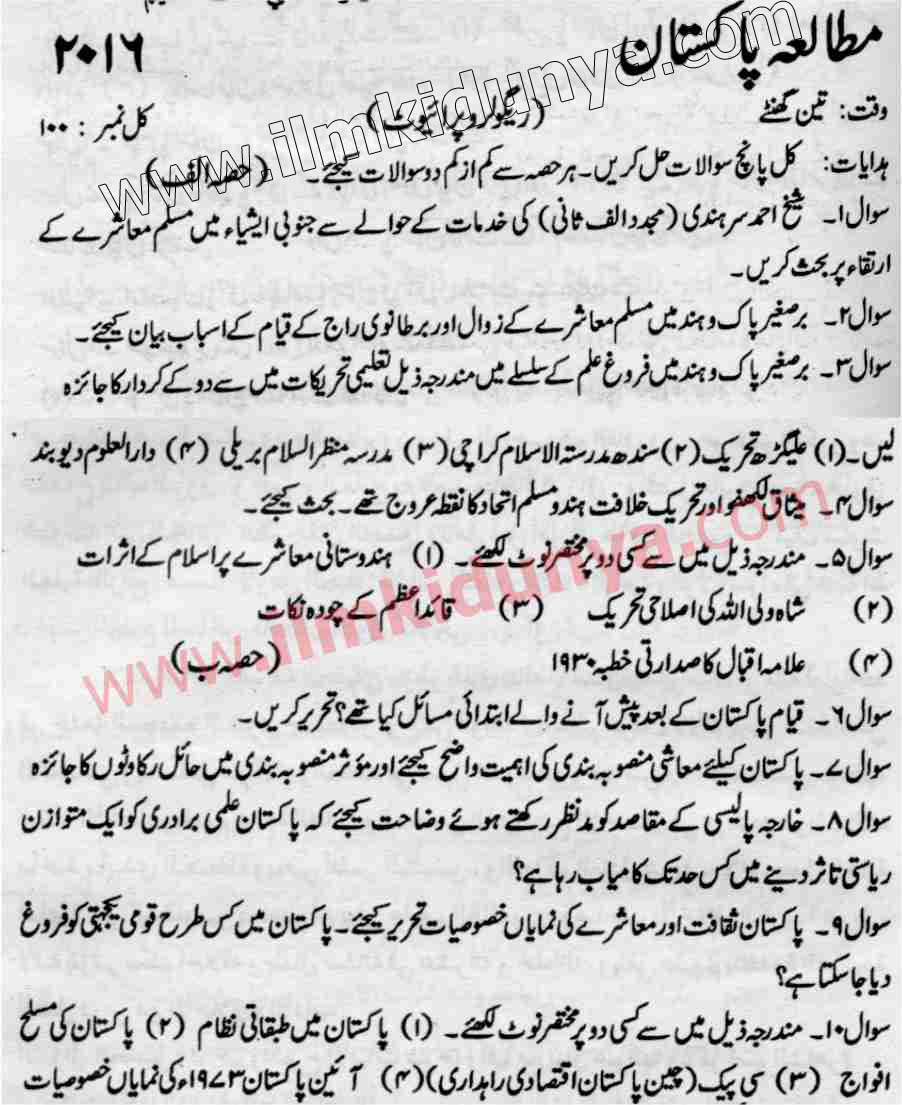 مطالعہ پاکستان ۲۰۱۶
وقت: تین گھنٹے (ریگولر و پرائیوٹ) کل نمبر: ۱۰۰
ہدایات: کل پانچ سوالات حل کریں۔ ہر حصہ سے کم از کم دو سوالات کیجئے۔ (حصہ الف)
سوال ۱۔ شیخ احمد سرہندی (مجدد الف ثانی) کی خدمات کے حوالے سے جنوبی ایشیاء میں مسلم معاشرے کے
ارتقاء پر بحث کریں۔
سوال ۲۔ برصغیر پاک و ہند میں مسلم معاشرے کے زوال اور برطانوی راج کے قیام کے اسباب بیان کیجئے۔
سوال ۳۔ برصغیر پاک و ہند میں فروغ علم کے سلسلے میں مندرجہ ذیل تعلیمی تحریکات میں سے دو کے کردار کا جائزہ
لیں۔ (۱) علیگڑھ تحریک (۲) سندھ مدرستہ الاسلام کراچی (۳) مدرسہ منظر السلام بریلی (۴) دارالعلوم دیوبند
سوال ۴۔ میثاق لکھنو اور تحریک خلافت ہندو مسلم اتحاد کا نقطہ عروج تھے۔ بحث کیجئے۔
سوال ۵۔ مندرجہ ذیل میں سے کسی دو پر مختصر نوٹ لکھئے۔ (۱) ہندوستانی معاشرے پر اسلام کے اثرات
(۲) شاہ ولی اللہ کی اصلاحی تحریک (۳) قائداعظم کے چودہ نکات
(۴) علامہ اقبال کا صدارتی خطبہ ۱۹۳۰ (حصہ ب)
سوال ۶۔ قیام پاکستان کے بعد پیش آنے والے ابتدائی مسائل کیا تھے؟ تحریر کریں۔
سوال ۷۔ پاکستان کیلئے معاشی منصوبہ بندی کی اہمیت واضح کیجئے اور مؤثر منصوبہ بندی میں حائل رکاوٹوں کا جائزہ
سوال ۸۔ خارجہ پالیسی کے مقاصد کو مدنظر رکھتے ہوئے وضاحت کیجئے کہ پاکستان علمی برادری کو ایک متوازن
ریاستی تاثر دینے میں کس حد تک کامیاب رہا ہے؟
سوال ۹۔ پاکستان ثقافت اور معاشرے کی نمایاں خصوصیات تحریر کیجئے۔ پاکستان میں کس طرح قومی یکجہتی کو فروغ
دیا جا سکتا ہے؟
سوال ۱۰۔ مندرجہ ذیل میں سے کسی دو پر مختصر نوٹ لکھئے۔ (۱) پاکستان میں طبقاتی نظام (۲) پاکستان کی مسلح
افواج (۳) سی پیک (چین پاکستان اقتصادی راہداری) (۴) آئین پاکستان ۱۹۷۳ء کی نمایاں خصوصیات
www.ilmkidunya.com
www.ilmkidunya.com